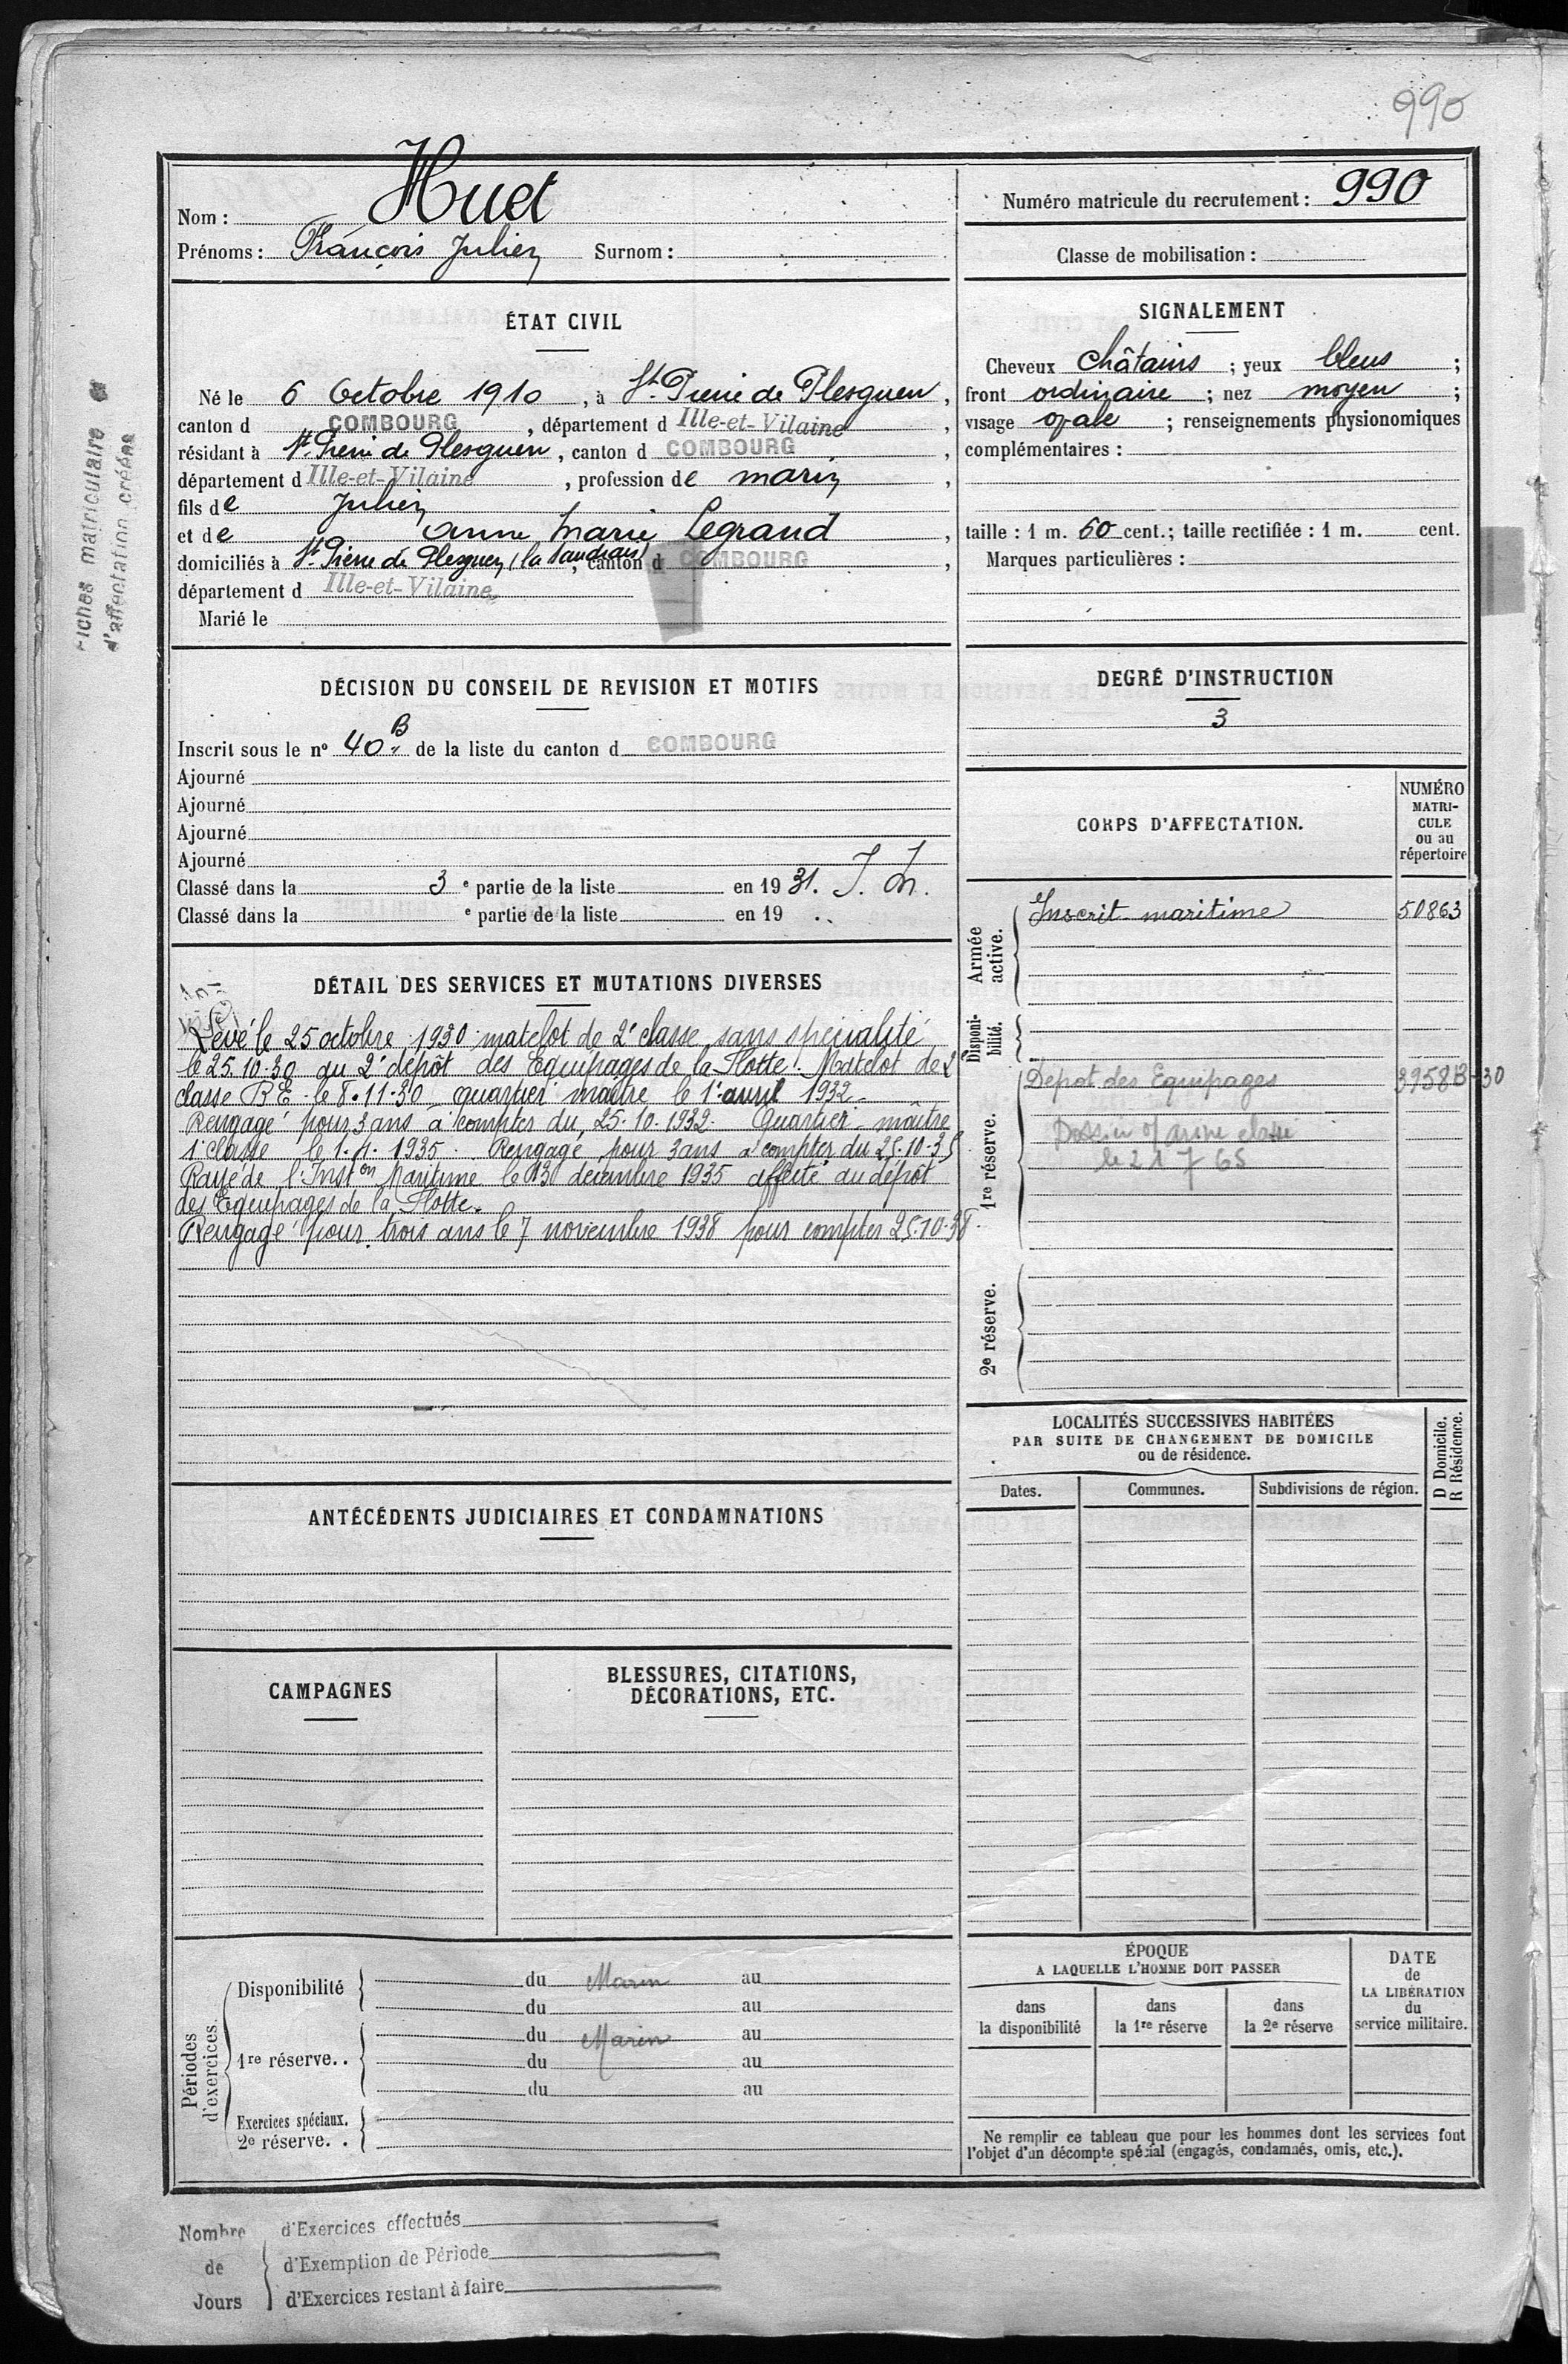 990
Nom : Huet
Prénoms : François Julien Surnom :
Numéro matricule du recrutement : 990
Classe de mobilisation :
Fiches matriculaire e
d'affectation créées
ÉTAT CIVIL
Né le 6 Octobre 1910, à St. Pierre de Plesguen,
canton d COMBOURG, département d Ille-et-Vilaine,
résidant à St. Pierre de Plesguen, canton d COMBOURG,
département d Ille-et-Vilaine, profession de marin,
fils de Julien
et de Anne Marie Legrand,
domiciliés à St. Pierre de Plesguen (la , canton d COMBOURG,
département d Ille-et-Vilaine
Marié le
SIGNALEMENT
Cheveux châtains ; yeux bleus ;
front ordinaire ; nez moyen ;
visage ovale ; renseignements physionomiques
complémentaires :
taille : 1 m. 60 cent. ; taille rectifiée : 1 m. cent.
Marques particulières :
DÉCISION DU CONSEIL DE REVISION ET MOTIFS
Inscrit sous le nº 40 B de la liste du canton d COMBOURG
Ajourné
Ajourné
Ajourné
Ajourné
Classé dans la 3 e partie de la liste en 19 31. I. M.
Classé dans la e partie de la liste en 19 ..
DEGRÉ D'INSTRUCTION
3
CORPS D'AFFECTATION.
NUMÉRO
MATRI-
CULE
ou au
répertoire
Armée
active.
Inscrit maritime 50863
Disponi-
bilité.
1re réserve.
Dépot des Equipages 3958B-30
le 21 7 65
2e réserve.
DÉTAIL DES SERVICES ET MUTATIONS DIVERSES
Levé le 25 octobre 1930 matelot de 2e classe sans spécialité
le 25.10.30 au 2e dépôt des Equipages de la Flotte. Matelot de 2e
classe B E le 8.11.30 quartier maître le 1er avril 1932.
Rengagé pour 3 ans à compter du 25.10.1932. Quartier-maître
1e classe le 1.4.1935. Rengagé pour 3 ans à compter du 25.10.35
Rayé de l'Inston Maritime le 13 décembre 1935 affecté au dépôt
des Equipages de la Flotte.
Rengagé pour trois ans le 7 novembre 1938 pour compter 25.10.38.
LOCALITÉS SUCCESSIVES HABITÉES
PAR SUITE DE CHANGEMENT DE DOMICILE
ou de résidence.
D Domicile.
R Résidence.
Dates. Communes. Subdivisions de région.
ANTÉCÉDENTS JUDICIAIRES ET CONDAMNATIONS
CAMPAGNES
BLESSURES, CITATIONS,
DÉCORATIONS, ETC.
Périodes
d'exercices.
Disponibilité du Marin au
du au
1re réserve.. du Marin au
du au
du au
Exercices spéciaux.
2e réserve. .
ÉPOQUE
A LAQUELLE L'HOMME DOIT PASSER
dans
la disponibilité
dans
la 1re réserve
dans
la 2e réserve
DATE
de
LA LIBÉRATION
du
service militaire.
Ne remplir ce tableau que pour les hommes dont les services font
l'objet d'un décompte spécial (engagés, condamnés, omis, etc.).
Nombre
de
Jours
d'Exercices effectués
d'Exemption de Période
d'Exercices restant à faire